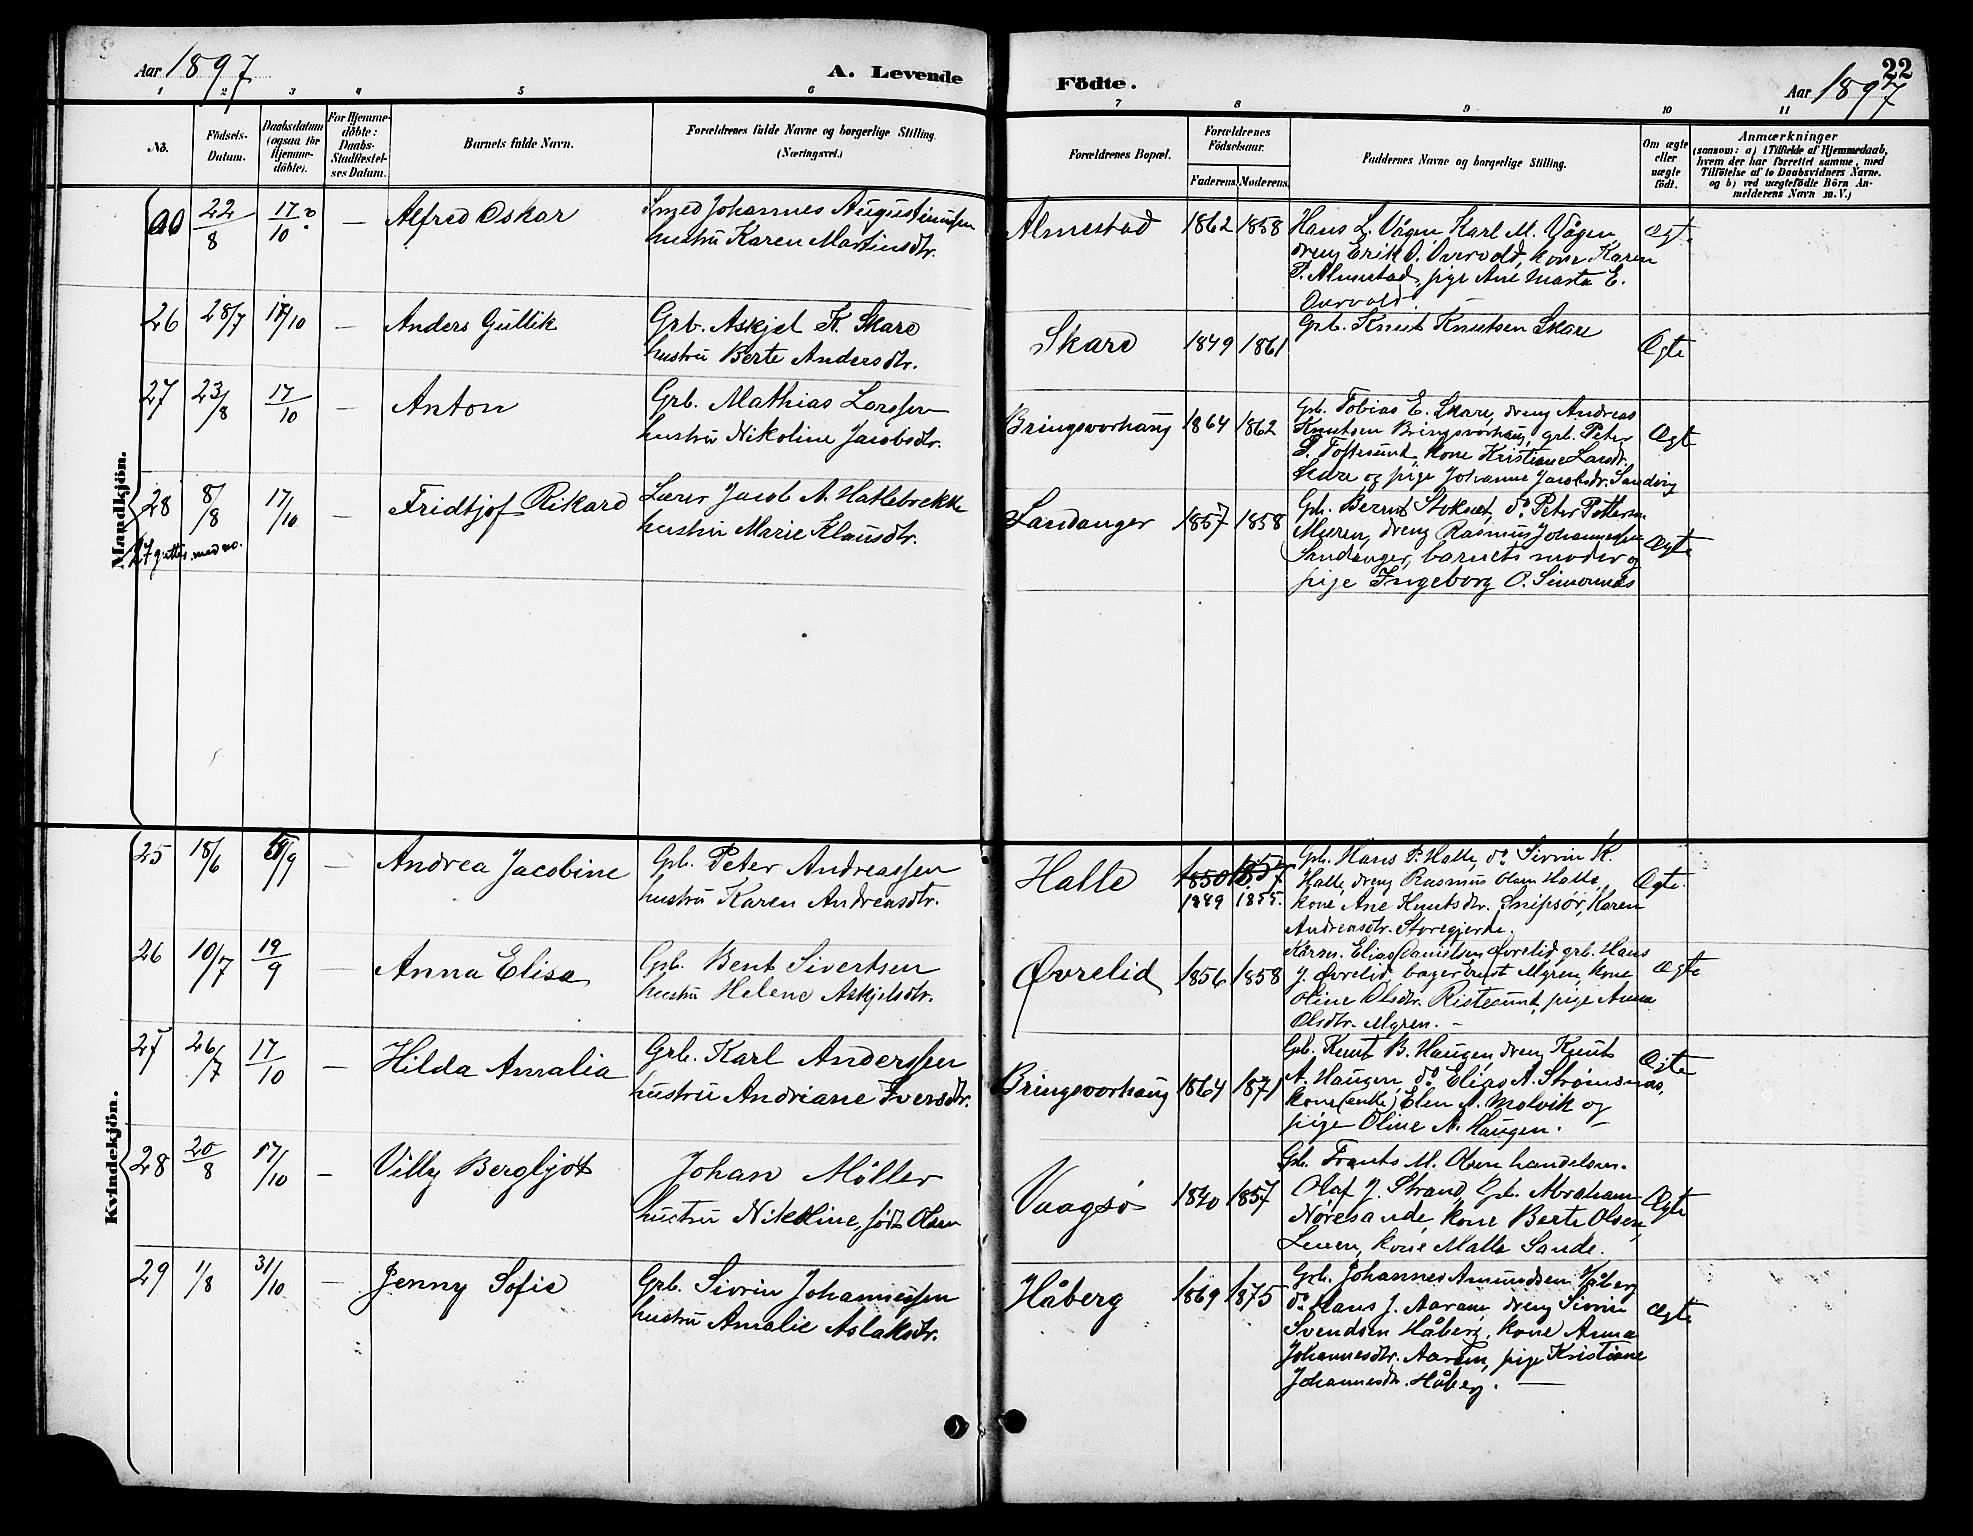 Aar 1897
A. Levende
Födte.
22
Aar 1897
1 2 3 4 5 6 7 8 9 10 11
No.
Födsels-
Datum.
Daabsdatum
(ogsaa for
Hjemme-
döbte).
For Hjemme-
döbte:
Daabs-
Stadfæstel-
ses Datum.
Barnets fulde Navn.
Forældrenes fulde Navne og borgerlige Stilling.
(Næringsvei.)
Forældrenes Bopæl.
Forældrenes
Födselsaar.
Faderens. Moderens.
Faddernes Navne og borgerlige Stilling.
Om ægte
eller
uægte
født.
Anmærkninger
(saasom: a) i Tilfælde af Hjemmedaab,
hvem der har forrettet samme, med
Tilföielse af to Daabsvidners Navne.
og b) ved uægtefödte Börn An-
melderens Navn m. V.)
Mandkjön.
22/8 17/10 ? — Alfred Oskar
Smed Johannes Augustinussen
hustru Karen Martinsdtr.
Almestad 1862 1858
Hans L. Vågen Karl M. Vågen
dreng Erik O. Overvold, kone Karen
P. Almestad, pige Ane Marta E.
Overvold.
Ægt.
26 28/7 17/10 — Anders Gullik
Grb. Askjel K. Skare
hustru Berte Andersdtr.
Skare 1849 1861
Grb. Knut Knutsen Skare
Ægte
27 23/8 17/10 — Anton
Grb. Mathias Larssen
hustru Nikoline Jacobsdtr.
Bringsvorhaug 1864 1862
Grb. Tobias E. Skare, dreng Andreas
Knutsen Bringsvorhaug, grb. Peter
P. Toftesund, kone Kristiane Larsdtr.
Skare og pige Johanne Jacobsdr. Sandvig
Ægt
28 8/8 17/10 — Fridtjof Rikard
Lærer Jacob A. Hatlebrekke
hustru Marie Klausdtr.
Landanger 1857 1858
Grb. Bernt Stokset, do Peter Pettersen
Myren, dreng Rasmus Johannessen
Sandanger, barnets moder og
pige Ingeborg O. Simonnæs
Ægte
Kvindekjön.
25 18/6 5/9 — Andrea Jacobine
Grb. Peter Andreassen
hustru Karen Andreasdtr.
Halle 1850 1857
1849 1855.
Grb. Hans P. Halle, do Sivrin K.
Halle, dreng Rasmus Olsen Halle,
kone Ane Knutsdtr. Snipsør, Karen
Andreasdtr. Storegjerde.
Ægte.
26 10/7 19/9 — Anna Elisa
Grb. Bent Sivertsen
hustru Helene Askjelsdtr.
Øvrelid 1856 1858
Elias Danielsen Øvrelid grb. Hans
J. Øvrelid, bager Myren, kone
Oline Olsdtr. Ristesund, pige Anna
Olsdtr. Myren. —
Ægte
27 26/7 17/10 — Hilda Amalia
Grb. Karl Anderssen
hustru Andriane Iversdtr.
Bringsvorhaug 1864 1871
Grb. Knut B. Haugen, dreng Knut
A. Haugen, do Elias A. Strømsnæs,
kone (enke) Elen A. Molvik og
pige Oline A. Haugen.
Ægte
28 20/8 17/10 — Villy Bergljot
Johan Möller
hustru Nikoline, født Olsen
Vaagsø 1840 1857
Grb. Frants M. Olsen handelsm.
Olaf J. Strand, Grb. Abraham
Nøresande, kone Berte Olsen,
kone Malla Sande.
Ægte
29 1/8 31/10 — Jenny Sofie
Grb. Sivrin Johannessen
hustru Amalie Aslaksdtr.
Håberg 1869 1875
Grb. Johannes Amundsen Håberg
do Hans J. Aaram, dreng Sivrin
Svendsen Håberg, kone Anna
Johannesdtr. Aaram, pige Kristiane
Johannesdtr. Håberg. —
Ægte